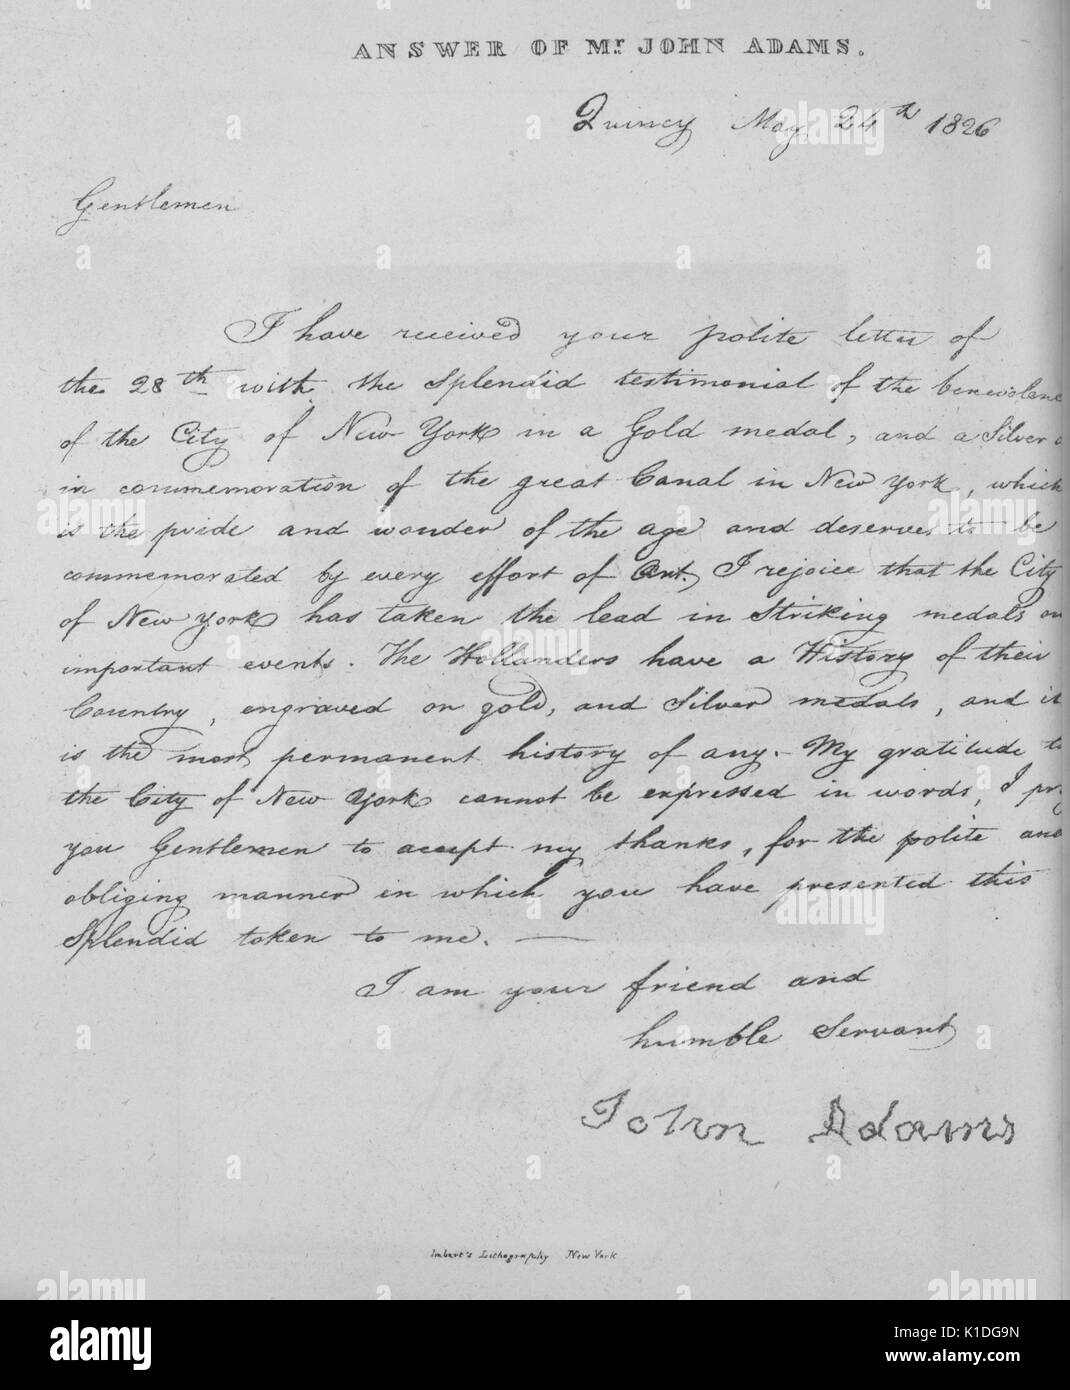 ANSWER OF Mr. JOHN ADAMS.
Quincy May 24th 1826
Gentlemen
I have received your polite letter of
the 28th with the Splendid testimonial of the benevolenc
of the City of New York in a Gold medal, and a Silver o
in commemoration of the great Canal in New York, which
is the pride and wonder of the age and deserves to be
commemorated by every effort of Art. I rejoice that the City
of New York has taken the lead in Striking medals on
important events. The Hollanders have a History of their
Country, engraved on gold, and Silver medals, and it
is the most permanent history of any. My gratitude to
the City of New York cannot be expressed in words, I pr
you Gentlemen to accept my thanks, for the polite and
obliging manner in which you have presented this
Splendid token to me. —
I am your friend and
humble Servant
John Adams
Imbert's Lithography New York
alamy
Image ID: K1DG9N
www.alamy.com